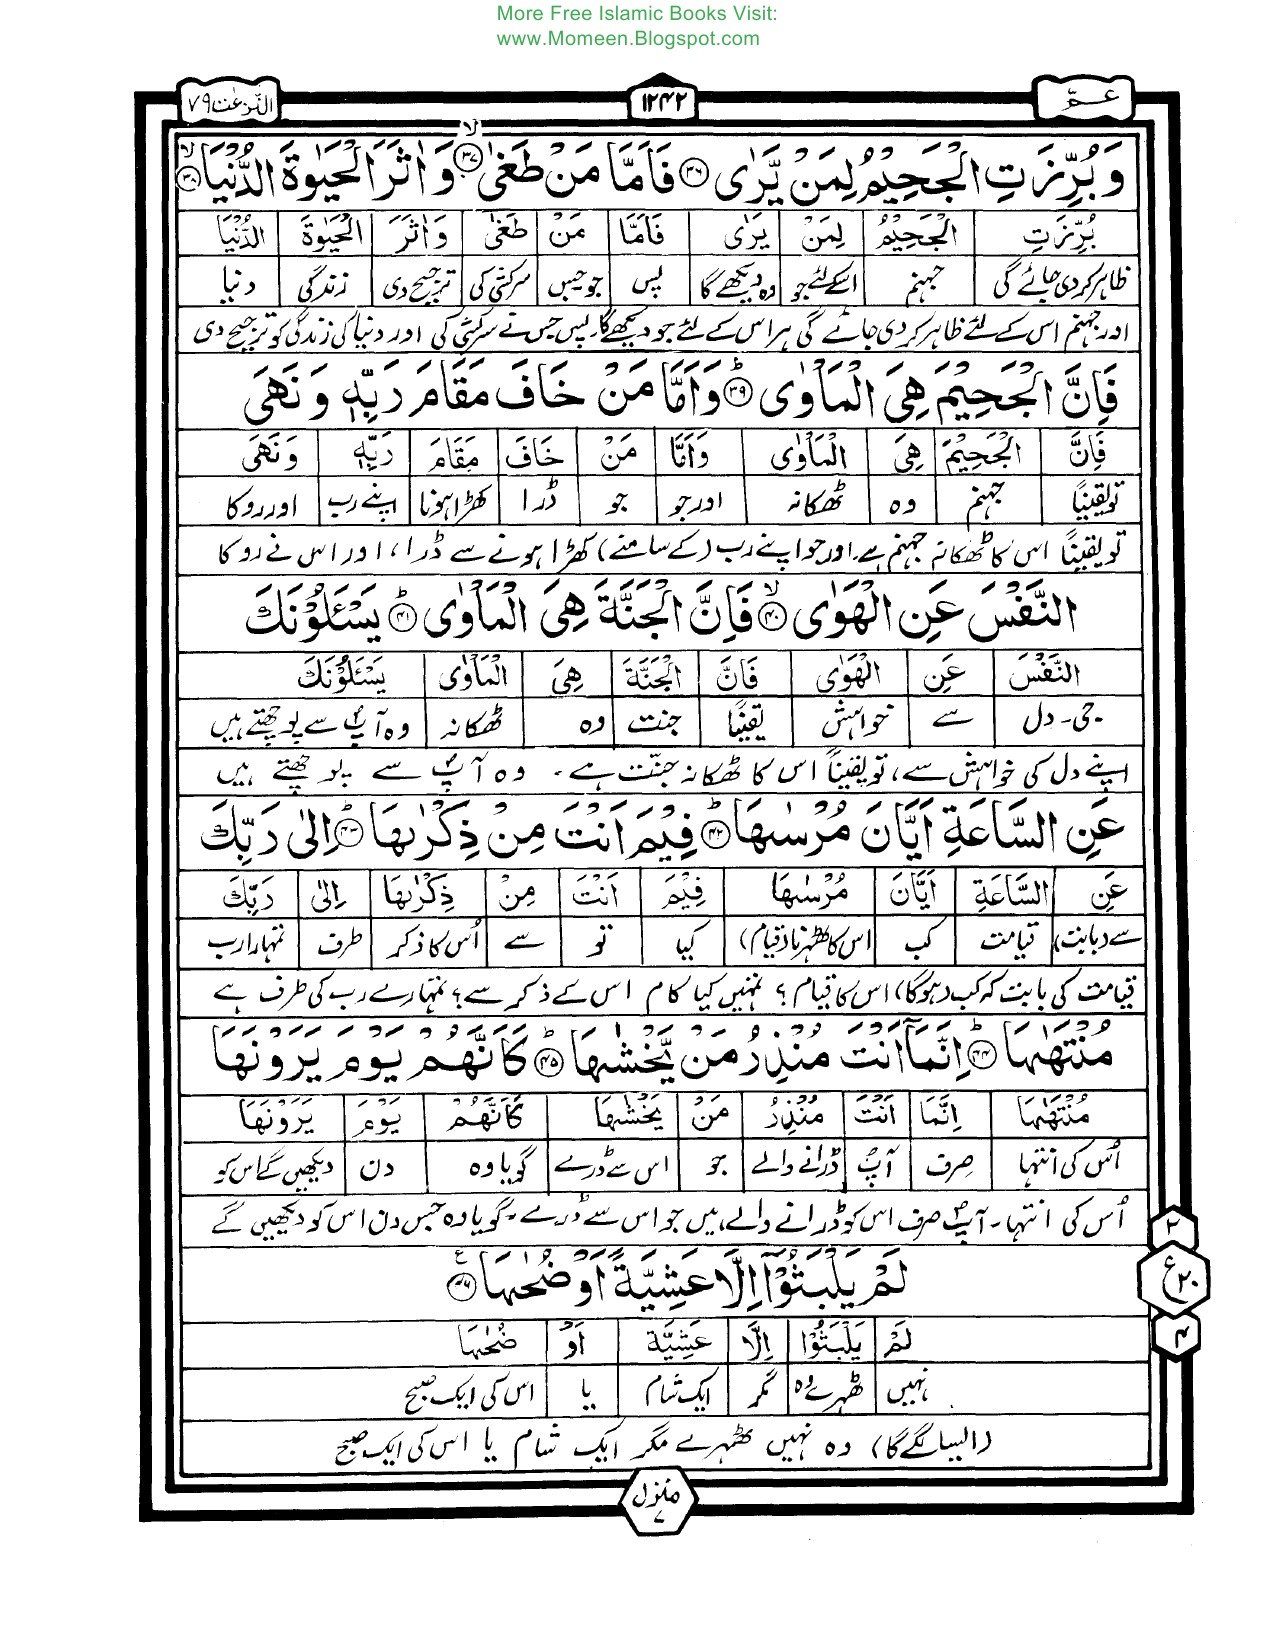 More Free Islamic Books Visit:
www.Momeen.Blogspot.com
عمّ ۱۲۴۲ النّٰزعٰت ۷۹
وَبُرِّزَتِ الْجَحِيْمُ لِمَنْ يَّرٰى ۳۶ فَاَمَّا مَنْ طَغٰى ۳۷ وَاٰثَرَ الْحَيٰوةَ الدُّنْيَا ۳۸
بُرِّزَتِ الْجَحِيْمُ لِمَنْ يَرٰى فَاَمَّا مَنْ طَغٰى وَاٰثَرَ الْحَيٰوةَ الدُّنْيَا
ظاہر کردی جائے گی جہنم اسکے لئے جو وہ دیکھے گا پس جو جیں سرکشی کی ترجیح دی زندگی دنیا
اور جہنم اس کے لئے ظاہر کردی جائے گی ہر اس کے لئے جو دیکھے گا۔ پس جس نے سرکشی کی اور دنیا کی زندگی کو ترجیح دی
فَاِنَّ الْجَحِيْمَ هِيَ الْمَاْوٰى ۳۹ وَاَمَّا مَنْ خَافَ مَقَامَ رَبِّهٖ وَنَهَى
فَاِنَّ الْجَحِيْمَ هِيَ الْمَاْوٰى وَاَمَّا مَنْ خَافَ مَقَامَ رَبِّهٖ وَنَهَى
تو یقینًا جہنم وہ ٹھکانہ اور جو جو ڈرا کھڑا ہونا اپنے رب اور روکا
تو یقینًا اس کا ٹھکانہ جہنم ہے۔ اور جو اپنے رب (کے سامنے) کھڑا ہونے سے ڈرا، اور اس نے روکا
النَّفْسَ عَنِ الْهَوٰى ۴۰ فَاِنَّ الْجَنَّةَ هِيَ الْمَاْوٰى ۴۱ يَسْـَٔلُوْنَكَ
النَّفْسَ عَنِ الْهَوٰى فَاِنَّ الْجَنَّةَ هِيَ الْمَاْوٰى يَسْـَٔلُوْنَكَ
جی۔ دل سے خواہش یقینًا جنت وہ ٹھکانہ وہ آپؐ سے پوچھتے ہیں
اپنے دل کی خواہش سے، تو یقینًا اس کا ٹھکانہ جنت ہے۔ وہ آپؐ سے پوچھتے ہیں
عَنِ السَّاعَةِ اَيَّانَ مُرْسٰىهَا ۴۲ فِيْمَ اَنْتَ مِنْ ذِكْرٰىهَا ۴۳ اِلٰى رَبِّكَ
عَنِ السَّاعَةِ اَيَّانَ مُرْسٰىهَا فِيْمَ اَنْتَ مِنْ ذِكْرٰىهَا اِلٰى رَبِّكَ
سے (بابت) قیامت کب اس کا ٹھہرنا (قیام) کیا تو سے اُس کا ذکر طرف تمہارا رب
قیامت کی بابت کہ کب (ہوگا) اس کا قیام؟ تمہیں کیا کام اس کے ذکر سے؟ تمہارے رب کی طرف ہے
مُنْتَهٰىهَا ۴۴ اِنَّمَآ اَنْتَ مُنْذِرُ مَنْ يَّخْشٰىهَا ۴۵ كَاَنَّهُمْ يَوْمَ يَرَوْنَهَا
مُنْتَهٰىهَا اِنَّمَا اَنْتَ مُنْذِرُ مَنْ يَخْشٰىهَا كَاَنَّهُمْ يَوْمَ يَرَوْنَهَا
اُس کی انتہا صرف آپؐ ڈرانے والے جو اس سے ڈرے گویا وہ دن دیکھیں گے اس کو
اُس کی انتہا۔ آپؐ صرف اس کو ڈرانے والے ہیں جو اس سے ڈرے۔ گویا وہ جس دن اس کو دیکھیں گے
لَمْ يَلْبَثُوْٓا اِلَّا عَشِيَّةً اَوْ ضُحٰىهَا ۴۶
لَمْ يَلْبَثُوْٓا اِلَّا عَشِيَّةً اَوْ ضُحٰىهَا
نہیں ٹھہرے وہ مگر ایک شام یا اس کی ایک صبح
(ایسا لگے گا) وہ نہیں ٹھہرے مگر ایک شام یا اس کی ایک صبح
۲
ع ۲۰
۴
منزل ۷